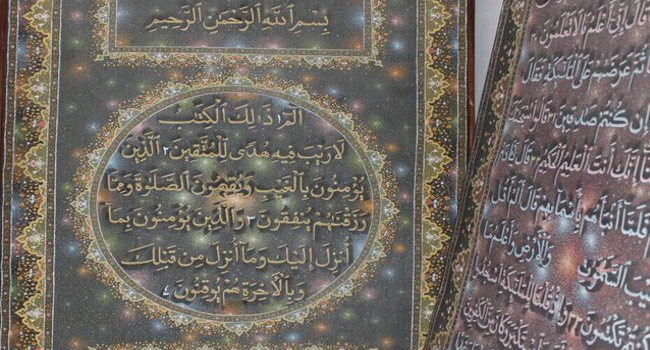 بِسْمِ ٱللَّهِ ٱلرَّحْمَٰنِ ٱلرَّحِيمِ
الٓمٓ ١ ذَٰلِكَ ٱلْكِتَٰبُ
لَا رَيْبَ فِيهِ هُدًى لِّلْمُتَّقِينَ ٢ ٱلَّذِينَ
يُؤْمِنُونَ بِٱلْغَيْبِ وَيُقِيمُونَ ٱلصَّلَوٰةَ وَمِمَّا
رَزَقْنَٰهُمْ يُنفِقُونَ ٣ وَٱلَّذِينَ يُؤْمِنُونَ بِمَآ
أُنزِلَ إِلَيْكَ وَمَآ أُنزِلَ مِن قَبْلِكَ
وَبِٱلْأَخِرَةِ هُمْ يُوقِنُونَ ٤
قَالَ إِنِّي أَعْلَمُ مَا لَا تَعْلَمُونَ
ثُمَّ عَرَضَهُمْ عَلَى ٱلْمَلَٰٓئِكَةِ فَقَالَ
إِن كُنتُمْ صَٰدِقِينَ قَالُوا۟
إِنَّكَ أَنتَ ٱلْعَلِيمُ ٱلْحَكِيمُ قَالَ
فَلَمَّآ أَنۢبَأَهُم بِأَسْمَآئِهِمْ قَالَ أَلَمْ أَقُل
ٱلسَّمَٰوَٰتِ وَٱلْأَرْضِ وَأَعْلَمُ
تَكْتُمُونَ وَإِذْ قُلْنَا لِلْمَلَٰٓئِكَةِ ٱسْجُدُوا۟